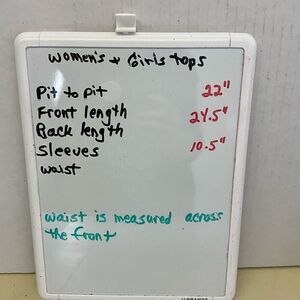 women's + Girls tops
Pit to pit 22"
Front length 24.5"
Back length
Sleeves 10.5"
waist
waist is measured across
the front